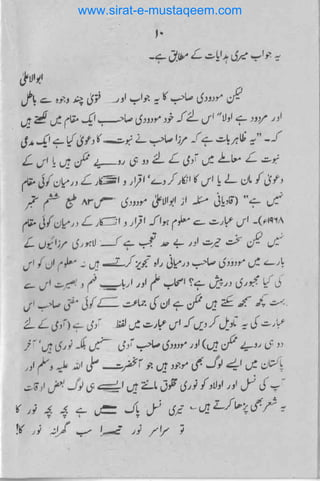 www.sirat-e-mustaqeem.com
۱۰
یہ جواب میری ہدایات کے مطابق ہے۔
ابوالاعلیٰ
لیکن مودودی صاحب کا یہ جواب اور فتویٰ چند وجوہ سے باطل
اور مردود ہے اولاً اس لئے کہ خود مودودی صاحب ایک مقام میں لکھتے ہیں
کہ۔ "یہ بات ظاہر ہے کہ مرزا صاحب نے نبوت کا دعویٰ کیا ہے ایک مدعی
نبوت کے معاملہ میں آدمی کے لئے دو ہی رویے ممکن ہیں یا اس کے
دعویٰ کو مان لے یا اس کا انکار کر دے، اقرار و انکار کے درمیان کوئی مقام
نہیں ہے" (
۱۹۶۸ء)۔ اس عبارت سے معلوم ہوا کہ اقرار و انکار کے درمیان کوئی مقام
لیکن سخت حیرت اور بے حد تعجب ہے کہ لاہوری مرزائیوں کے
بارے میں مودودی صاحب درمیانی راہ تجویز کرتے ہیں نہ معلوم ان کو اس
کی کیا مجبوری در پیش ہے؟ اصحاب علم و فہم اور ارباب بصیرت اس سے
بہت کچھ سمجھ سکتے ہیں ممکن ہے ان کی جماعت کے کوئی مفتی صاحب اس
عبارت کی یہ تاویل کر دیں کہ اس عبارت میں لفظ آدمی ہے (آدمی کے لئے
دو ہی رویے ممکن ہیں) اور مودودی صاحب آدمی نہیں بلکہ نوری ہیں، آخر
پاکستان میں ایسے لوگ بھی موجود ہیں جو آنحضرت صلی اللہ علیہ وسلم اور
آپ کی نسل اور اولاد کو نوری مخلوق مانتے ہیں ایسے ہی لوگ بعض اوقات
یہ شعر بھی پڑھا کرتے ہیں ؎ تیری نسل پاک میں ہے بچہ بچہ نور کا
تو سراسر نور تیرا سب گھرانہ نور کا!